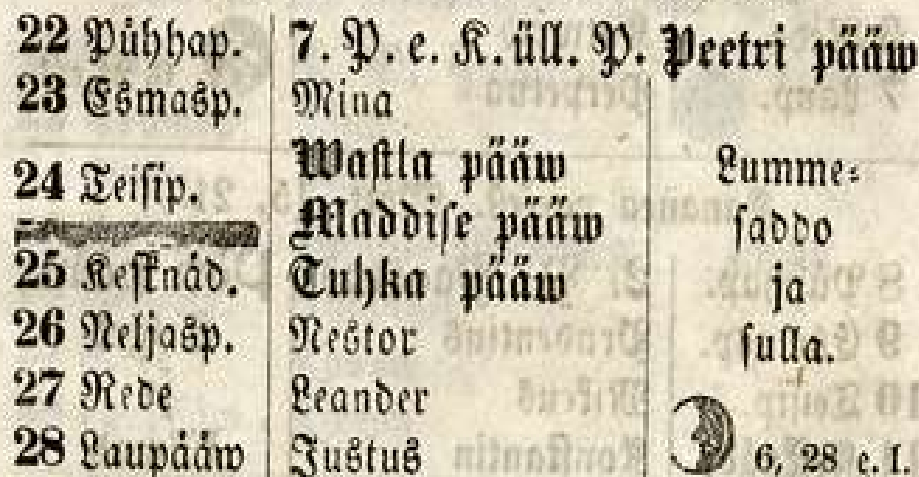 22 Pühhap. 7. P. e. K. üll. P. Peetri pääw
23 Esmasp. Mina
24 Teisip. Wastla pääw Lumme-
Maddise pääw saddo
25 Kesknäd. Tuhka pääw ja
26 Neljasp. Nestor sulla.
27 Rede Leander
28 Laupääw Justus 6, 28 e. l.